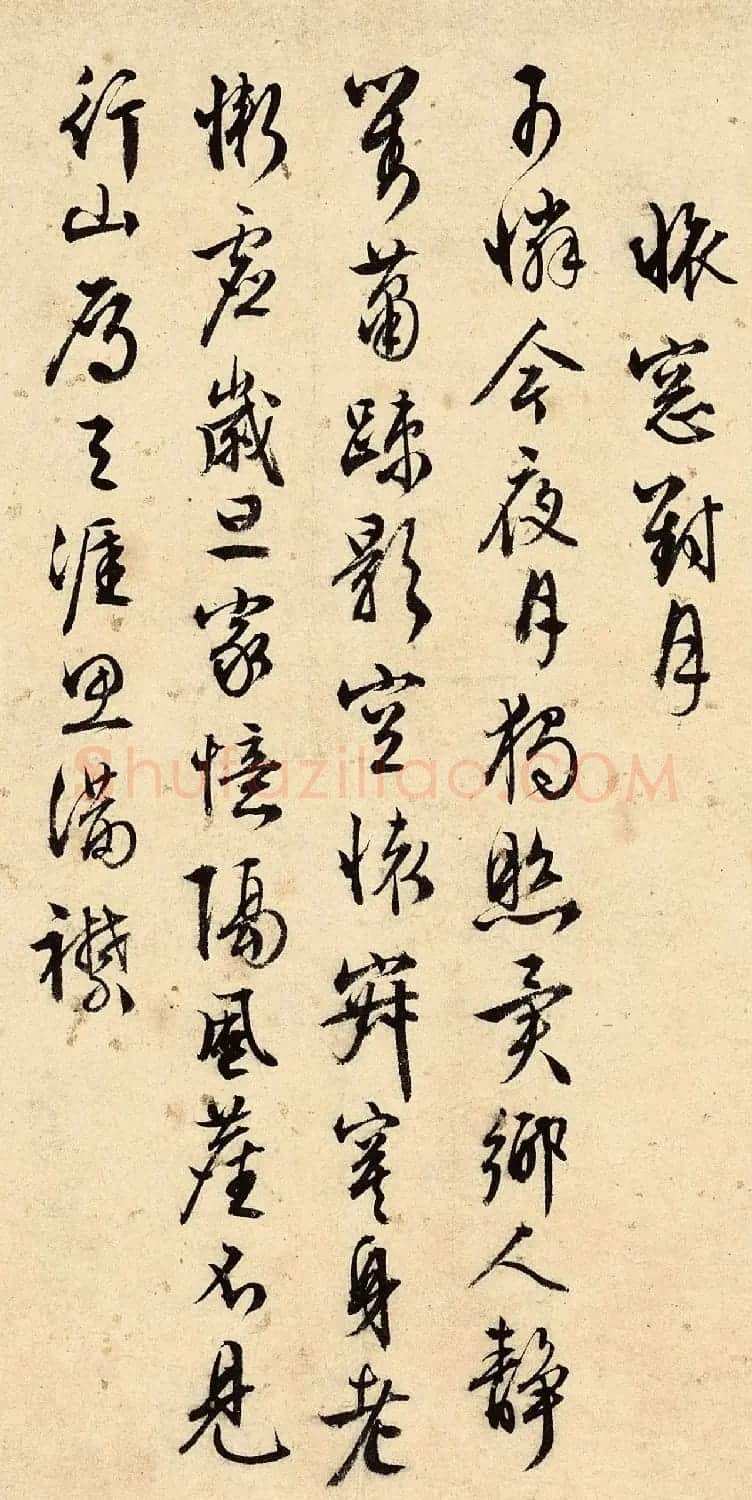 旅窓對月
可憐今夜月獨照異鄉人靜
對蕭疎影空懷寂寞身老
慚虛歲旦家憶隔風塵不見
行山雁天涯思滿襟
Shufaziliao.COM